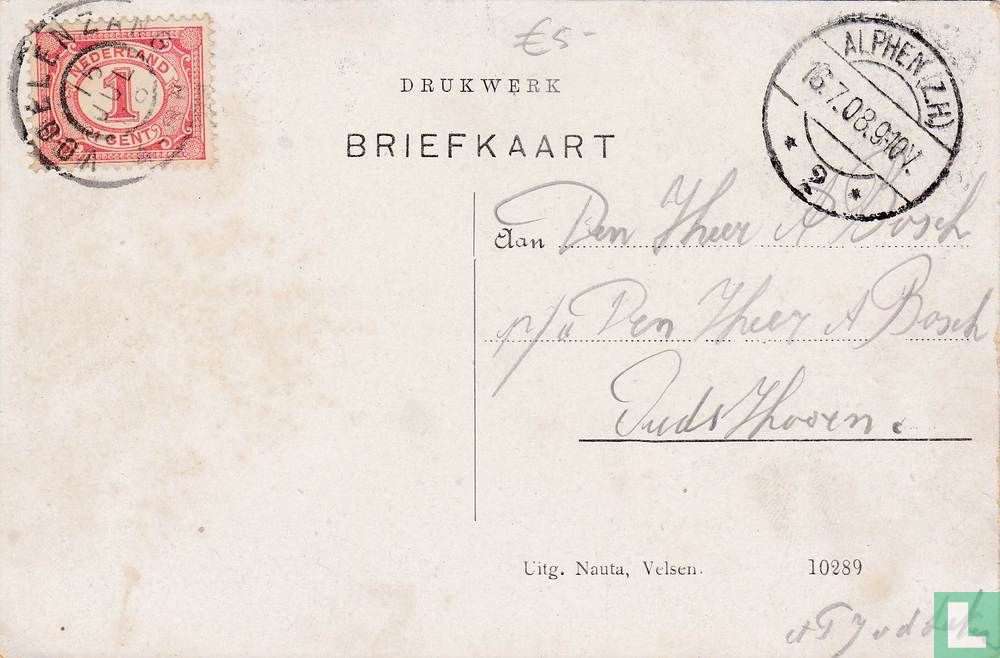 VOGELENZANG
NEDERLAND
1
CENT
€5-
DRUKWERK
BRIEFKAART
ALPHEN (Z.H)
16.7.08.9-10V.
* 2 *
Aan Den Heer A Bosch
p/a Den Heer A Bosch
Oudshoorn.
Uitg. Nauta, Velsen. 10289
L